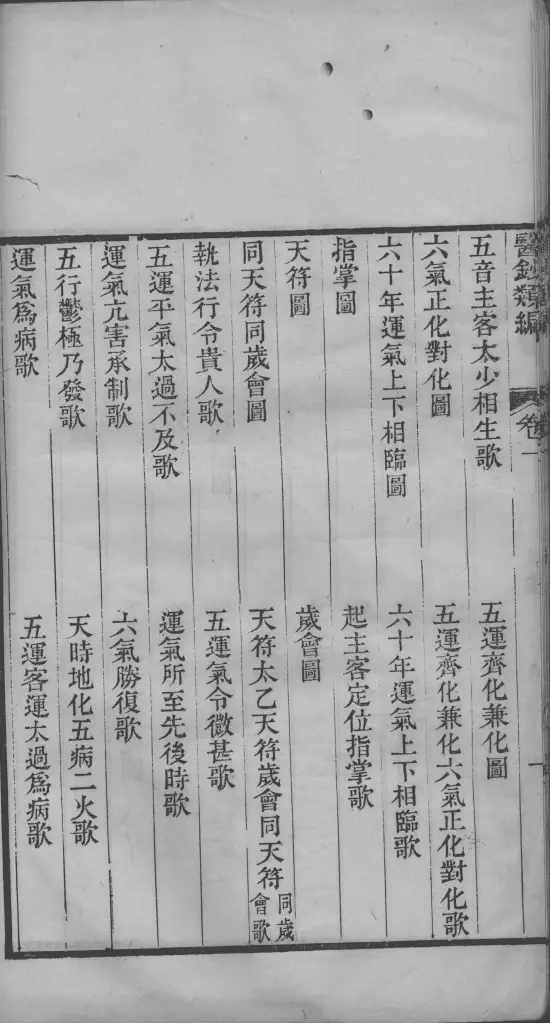 醫鈔類編 卷一 一
五音主客太少相生歌 五運齊化兼化圖
六氣正化對化圖 五運齊化兼化六氣正化對化歌
六十年運氣上下相臨圖 六十年運氣上下相臨歌
指掌圖 起主客定位指掌歌
天符圖 歲會圖
同天符同歲會圖 天符太乙天符歲會同天符同歲會歌
執法行令貴人歌 五運氣令微甚歌
五運平氣太過不及歌 運氣所至先後時歌
運氣亢害承制歌 六氣勝復歌
五行鬱極乃發歌 天時地化五病二火歌
運氣爲病歌 五運客運太過爲病歌